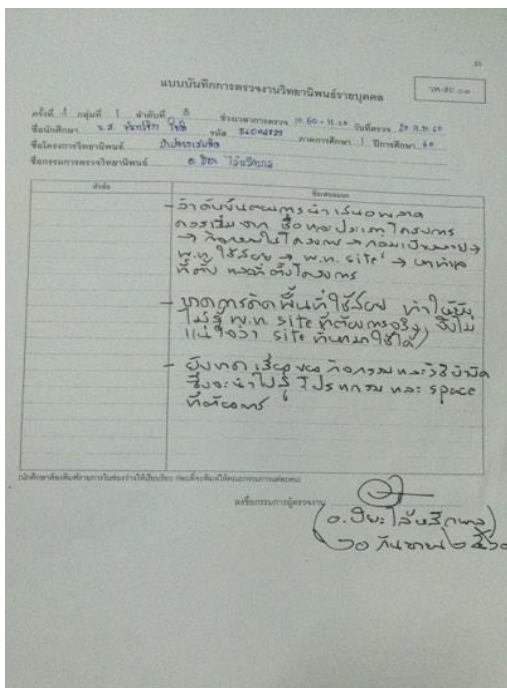 33
แบบบันทึกการตรวจงานวิทยานิพนธ์รายบุคคล
ครั้งที่ 1 กลุ่มที่ 1 ลำดับที่ 8 ช่วงเวลาการตรวจ วันที่ตรวจ 20 ก.ย. 60
ชื่อนักศึกษา น.ส. รหัส ภาคการศึกษา 1 ปีการศึกษา 60
ชื่อโครงการวิทยานิพนธ์
ชื่อกรรมการตรวจวิทยานิพนธ์ อ. ปิยะ
หัวข้อ ข้อเสนอแนะ
- ลำดับขั้นตอนการนำเสนอพลาด
ควรเริ่มจาก ชื่อและประเภทโครงการ
→ กิจกรรมในโครงการ → กลุ่มเป้าหมาย →
พ.ท. ใช้สอย → พ.ท. site → หาทำเล
ที่ตั้ง และที่ตั้งโครงการ
- ขาดการคิดพื้นที่ใช้สอย ทำให้ยัง
ไม่รู้ พ.ท. site ที่ต้องการจริง, จึงไม่
แน่ใจว่า site ที่หามาใช้ได้
- ยังขาดเรื่องของกิจกรรมและวิธีบำบัด
ซึ่งจะนำไปสู่โปรแกรมและ space
ที่ต้องการ
ลงชื่อกรรมการผู้ตรวจงาน
(อ. ปิยะ)
๒๐ กันยายน ๒๕๖๐